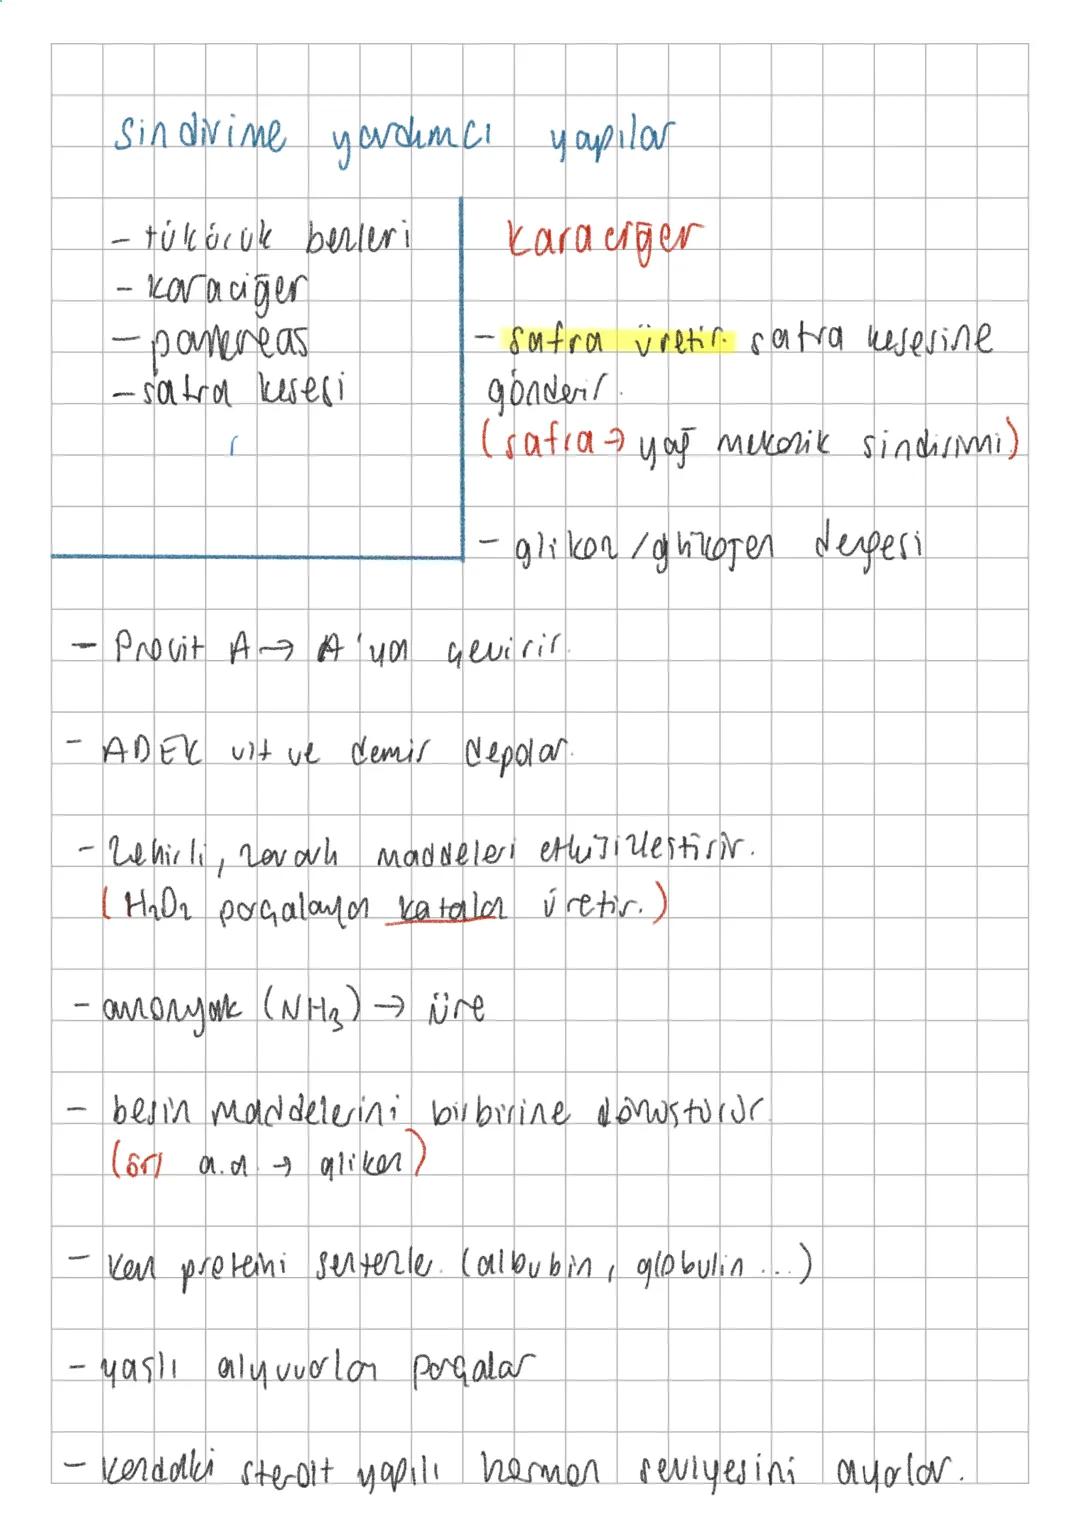 sindirime yardımcı yapılar
- tükürük bezleri
- karaciğer
- pankreas
- safra kesesi
karaciğer
- safra üretir. safra kesesine
gönderir.
(safra → yağ mekanik sindirimi)
- glikoz / glikojen dengesi
- Provit A → A'ya çevirir.
- ADEK vit ve demir depolar.
- Zehirli, zararlı maddeleri etkisizleştirir.
( H₂O₂ parçalayan katalaz üretir.)
- amonyak (NH₃) → üre
- besin maddelerini birbirine dönüştürür.
(ör/ a.a. → glikoz)
- kan proteini sentezle. (albubin, globulin ...)
- yaşlı alyuvarları parçalar
- kandaki steroit yapılı hormon seviyesini ayarlar.